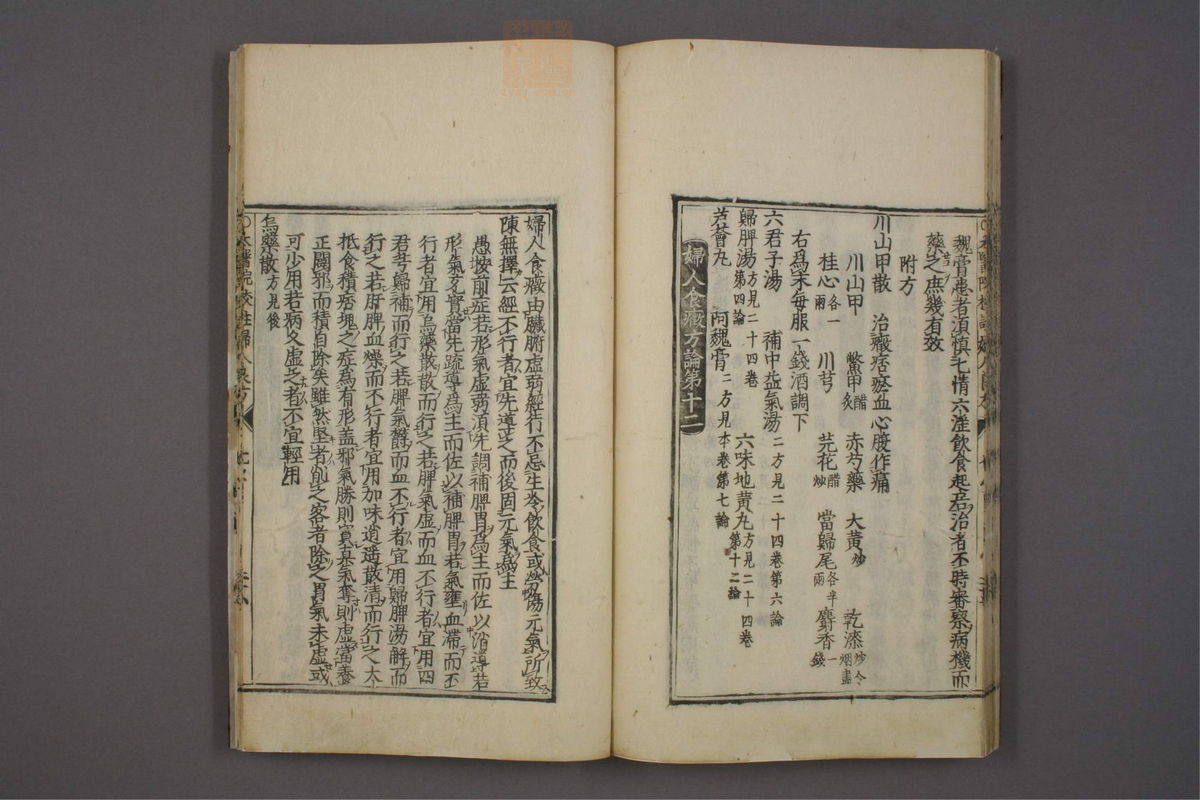 魏膏患者須慎七情六淫飲食起居治者不時審察病機而
藥之庶幾有效
附方
川山甲散　治癥痞瘀血心腹作痛
川山甲　鱉甲醋炙　赤芍藥　大黃炒　乾漆炒令烟盡
桂心各一兩　川芎　芫花醋炒　當歸尾各半兩　麝香一錢
右爲末每服一錢酒調下
六君子湯　補中益氣湯二方見二十四卷第六論
歸脾湯方見二十四卷第四論　六味地黃丸方見二十四卷第十二論
芦薈丸　阿魏膏二方見本卷第七論
婦人食癥方論第十二
婦人食癥由臟腑虛弱經行不忌生冷飲食或勞傷元氣所致
陳無擇云經不行者宜先導之而後固元氣爲主
愚按前症若形氣虛弱須先調補脾胃爲主而佐以消導若
形氣充實當先疏導爲主而佐以補脾胃若氣壅血滯而不
行者宜用烏藥散散而行之若脾氣虛而血不行者宜用四
君芎歸補而行之若脾氣鬱而血不行者宜用歸脾湯解而
行之若肝脾血燥而不行者宜用加味逍遥散清而行之大
抵食積痞塊之症爲有形盖邪氣勝則實真氣奪則虛當養
正闢邪而積自除矣雖然堅者削之客者除之胃氣未虛或
可少用若病久虛乏者不宜輕用
烏藥散方見後